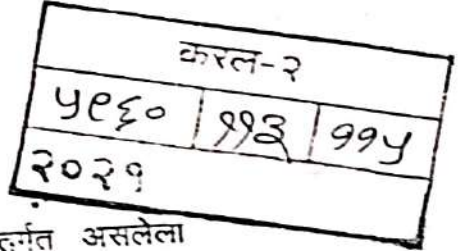 करल-२
५९६० ११३ ११५
२०२१
असलेला